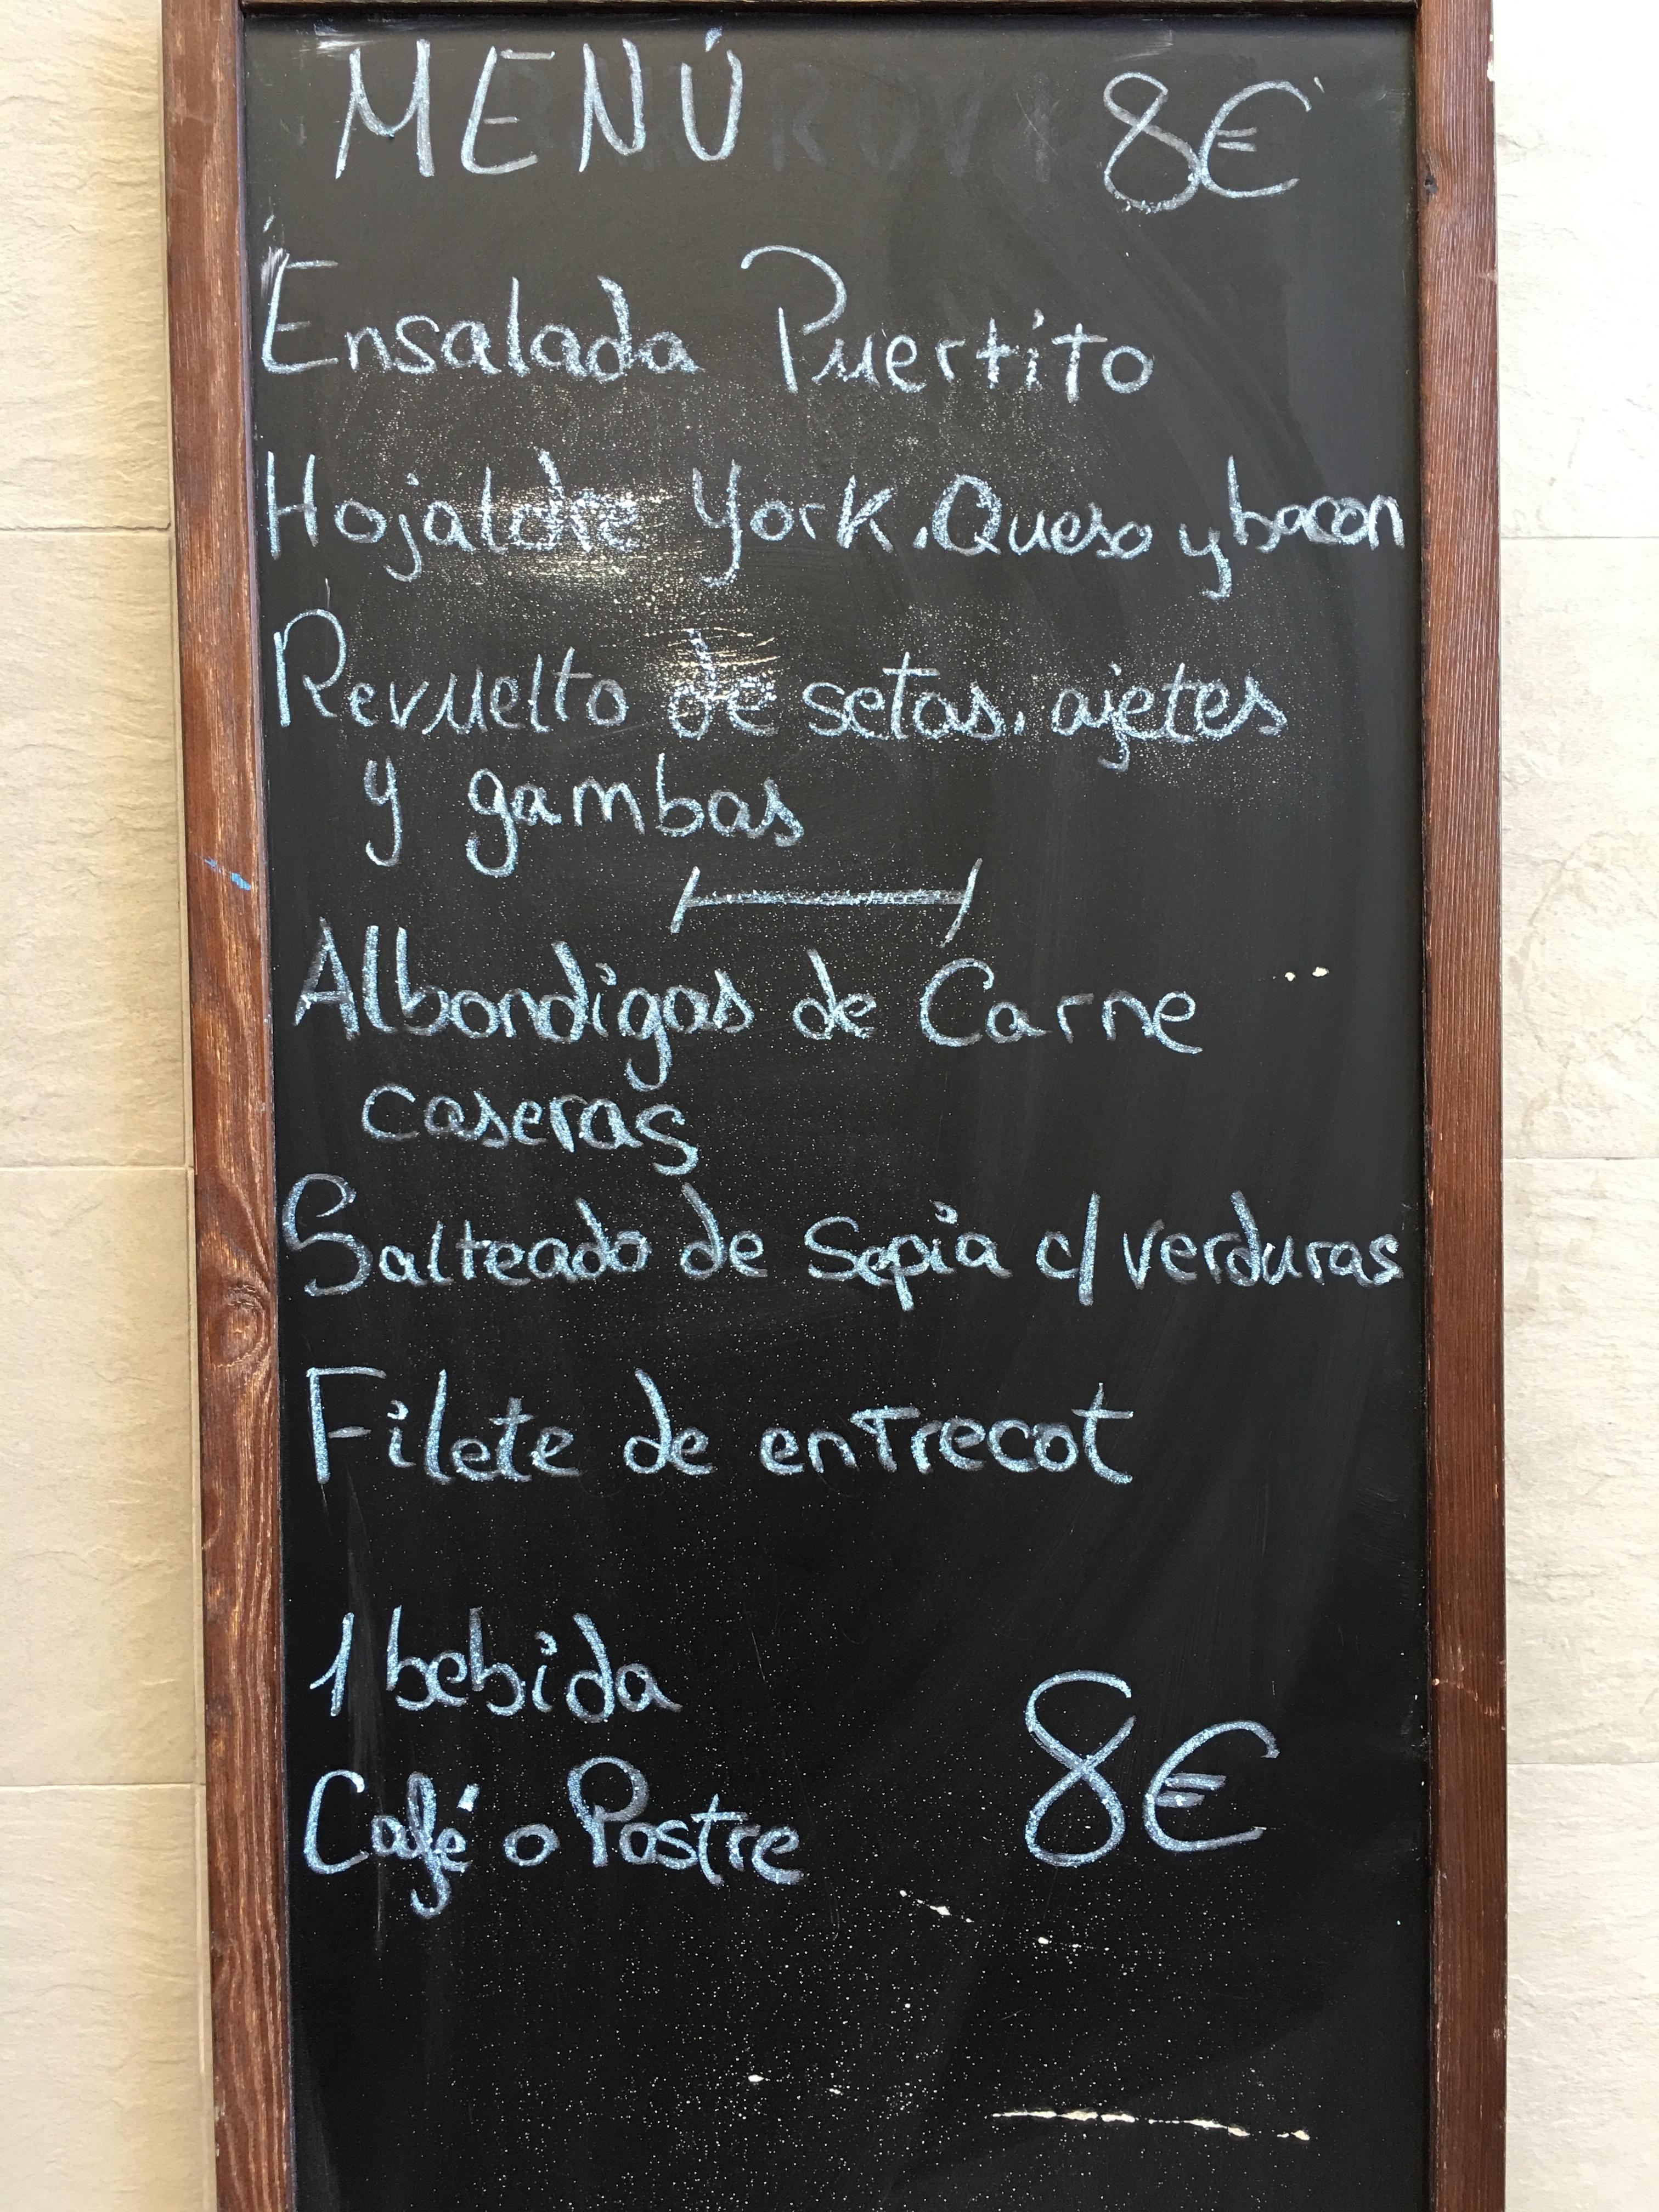 MENÚ 8€
Ensalada Puertito
Hojaldre York, Queso y bacon
Revuelto de setas, ajetes
y gambas
Albondigas de Carne
caseras
Salteado de Sepia c/ verduras
Filete de entrecot
1 bebida
Café o Postre 8€